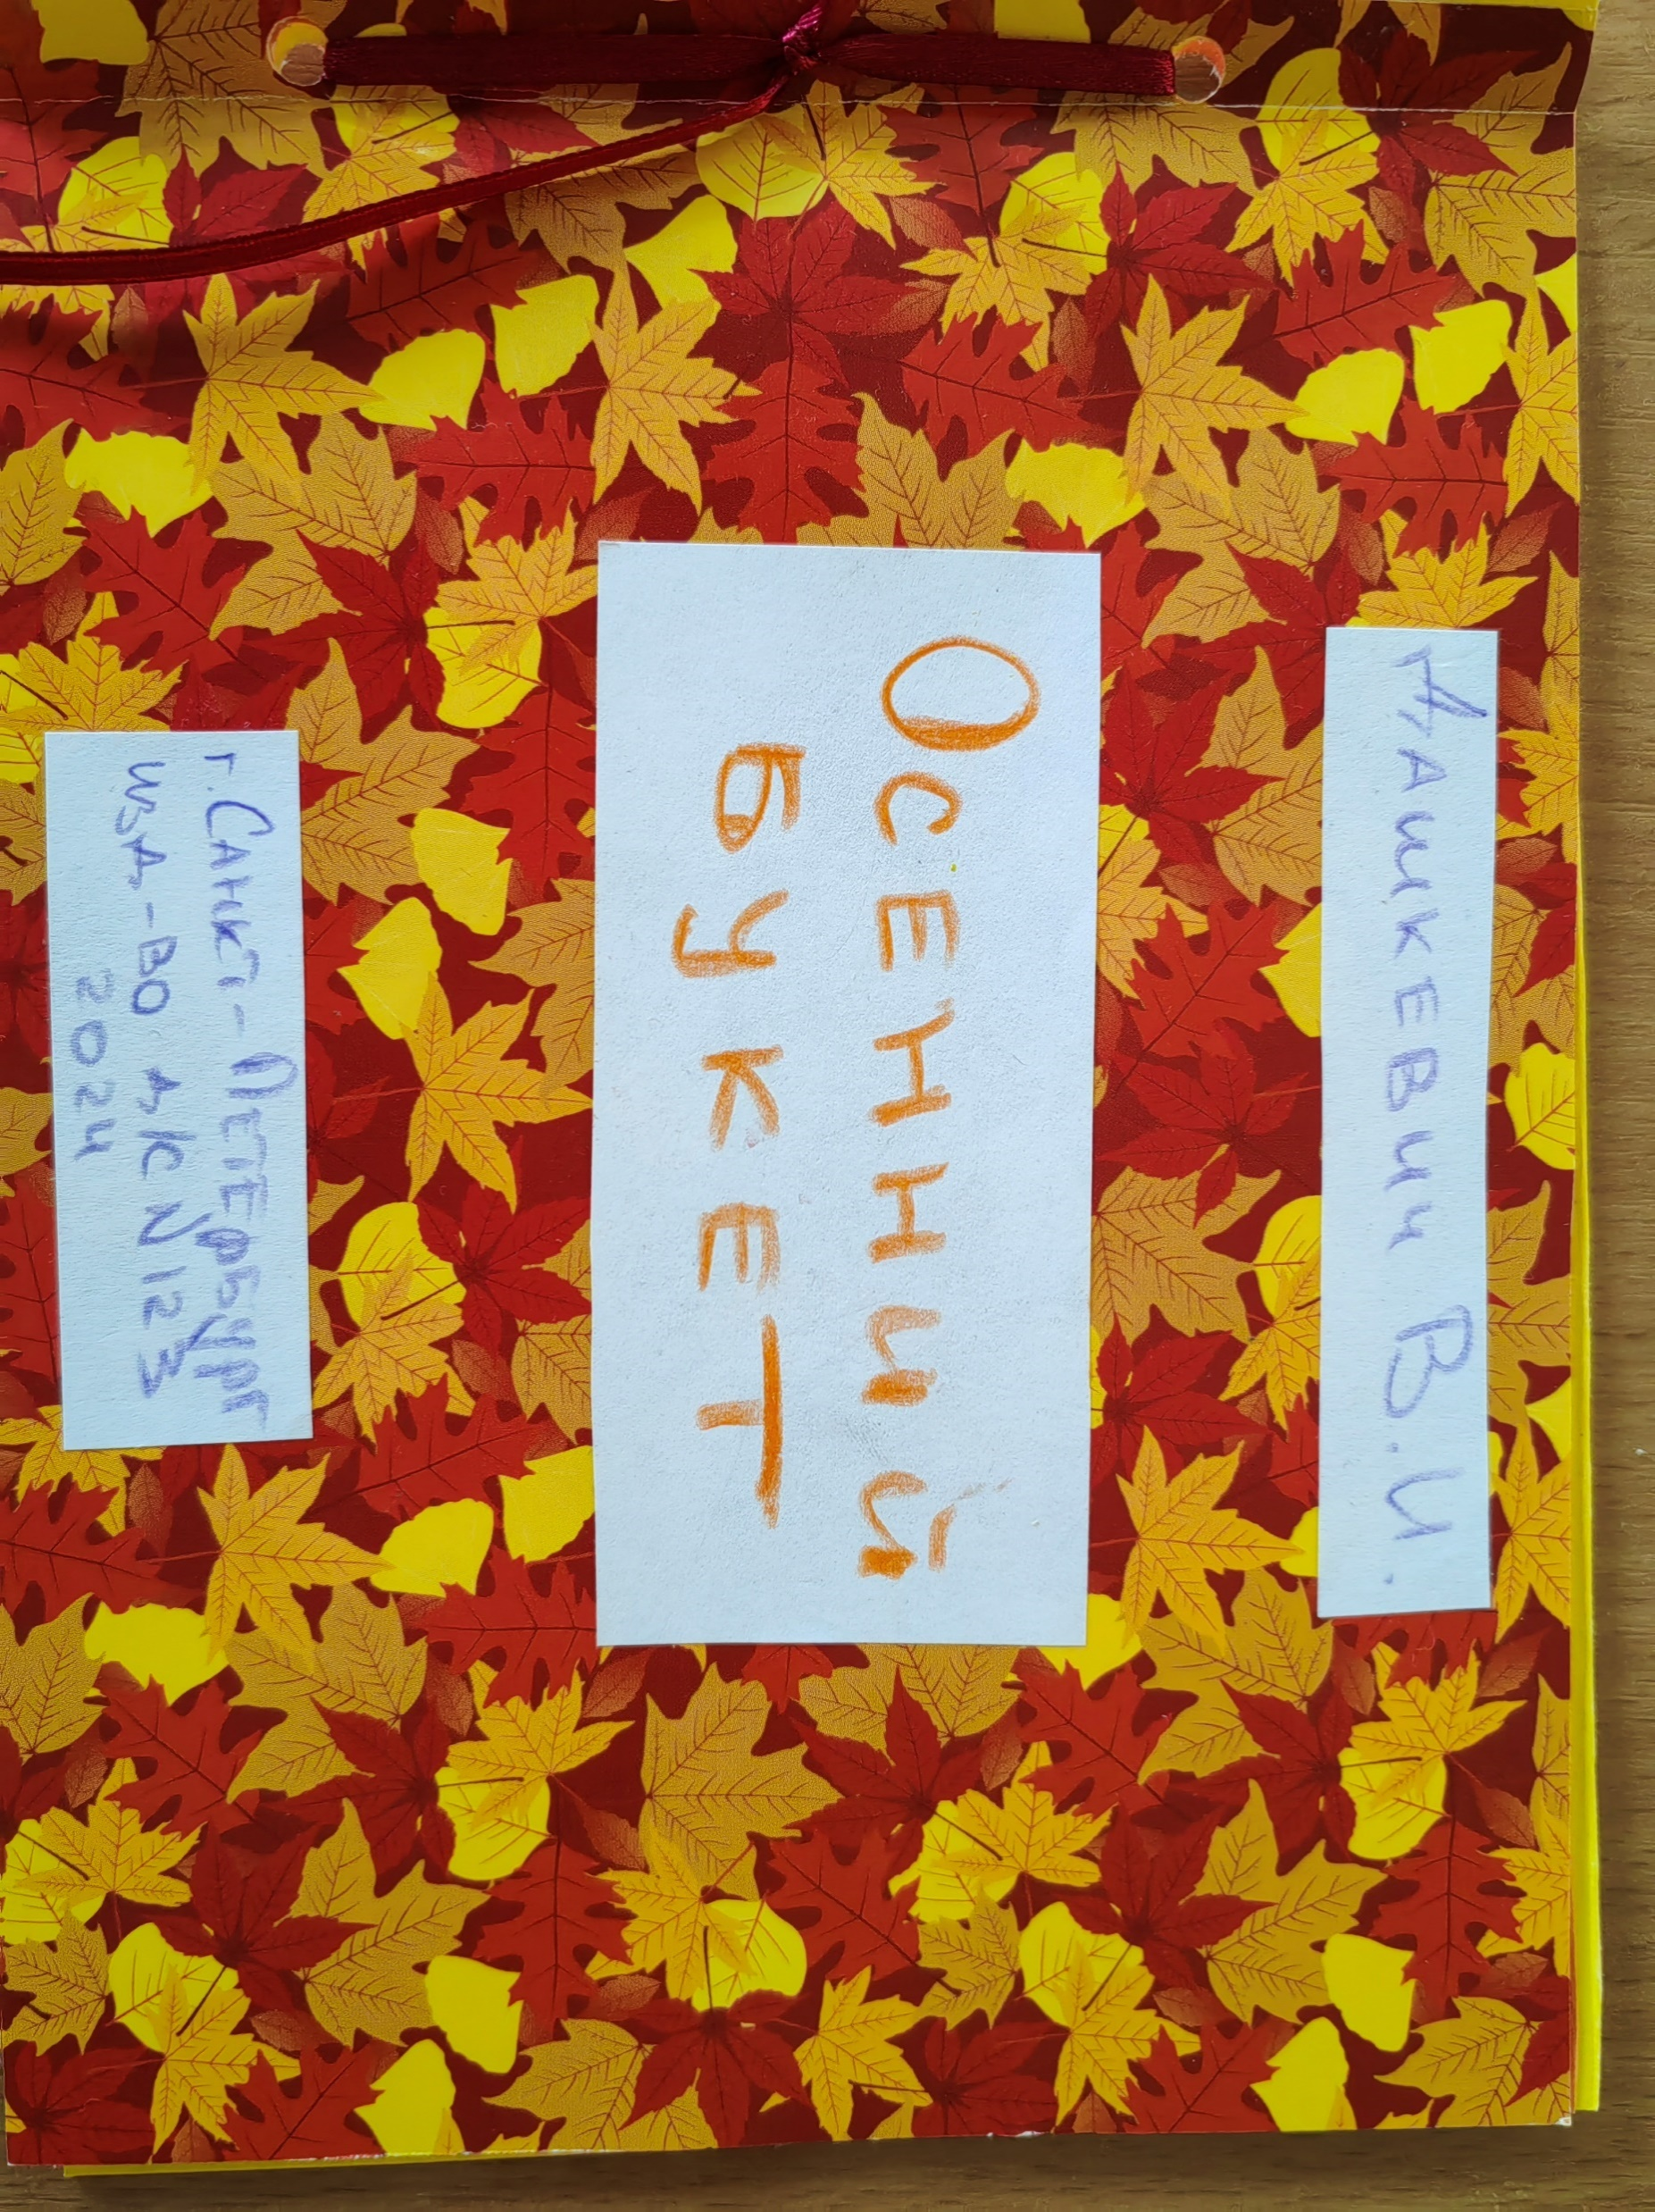 Дашкевич В.И.
Осенний
букет
г. Санкт-Петербург
изд-во дк N123
2024